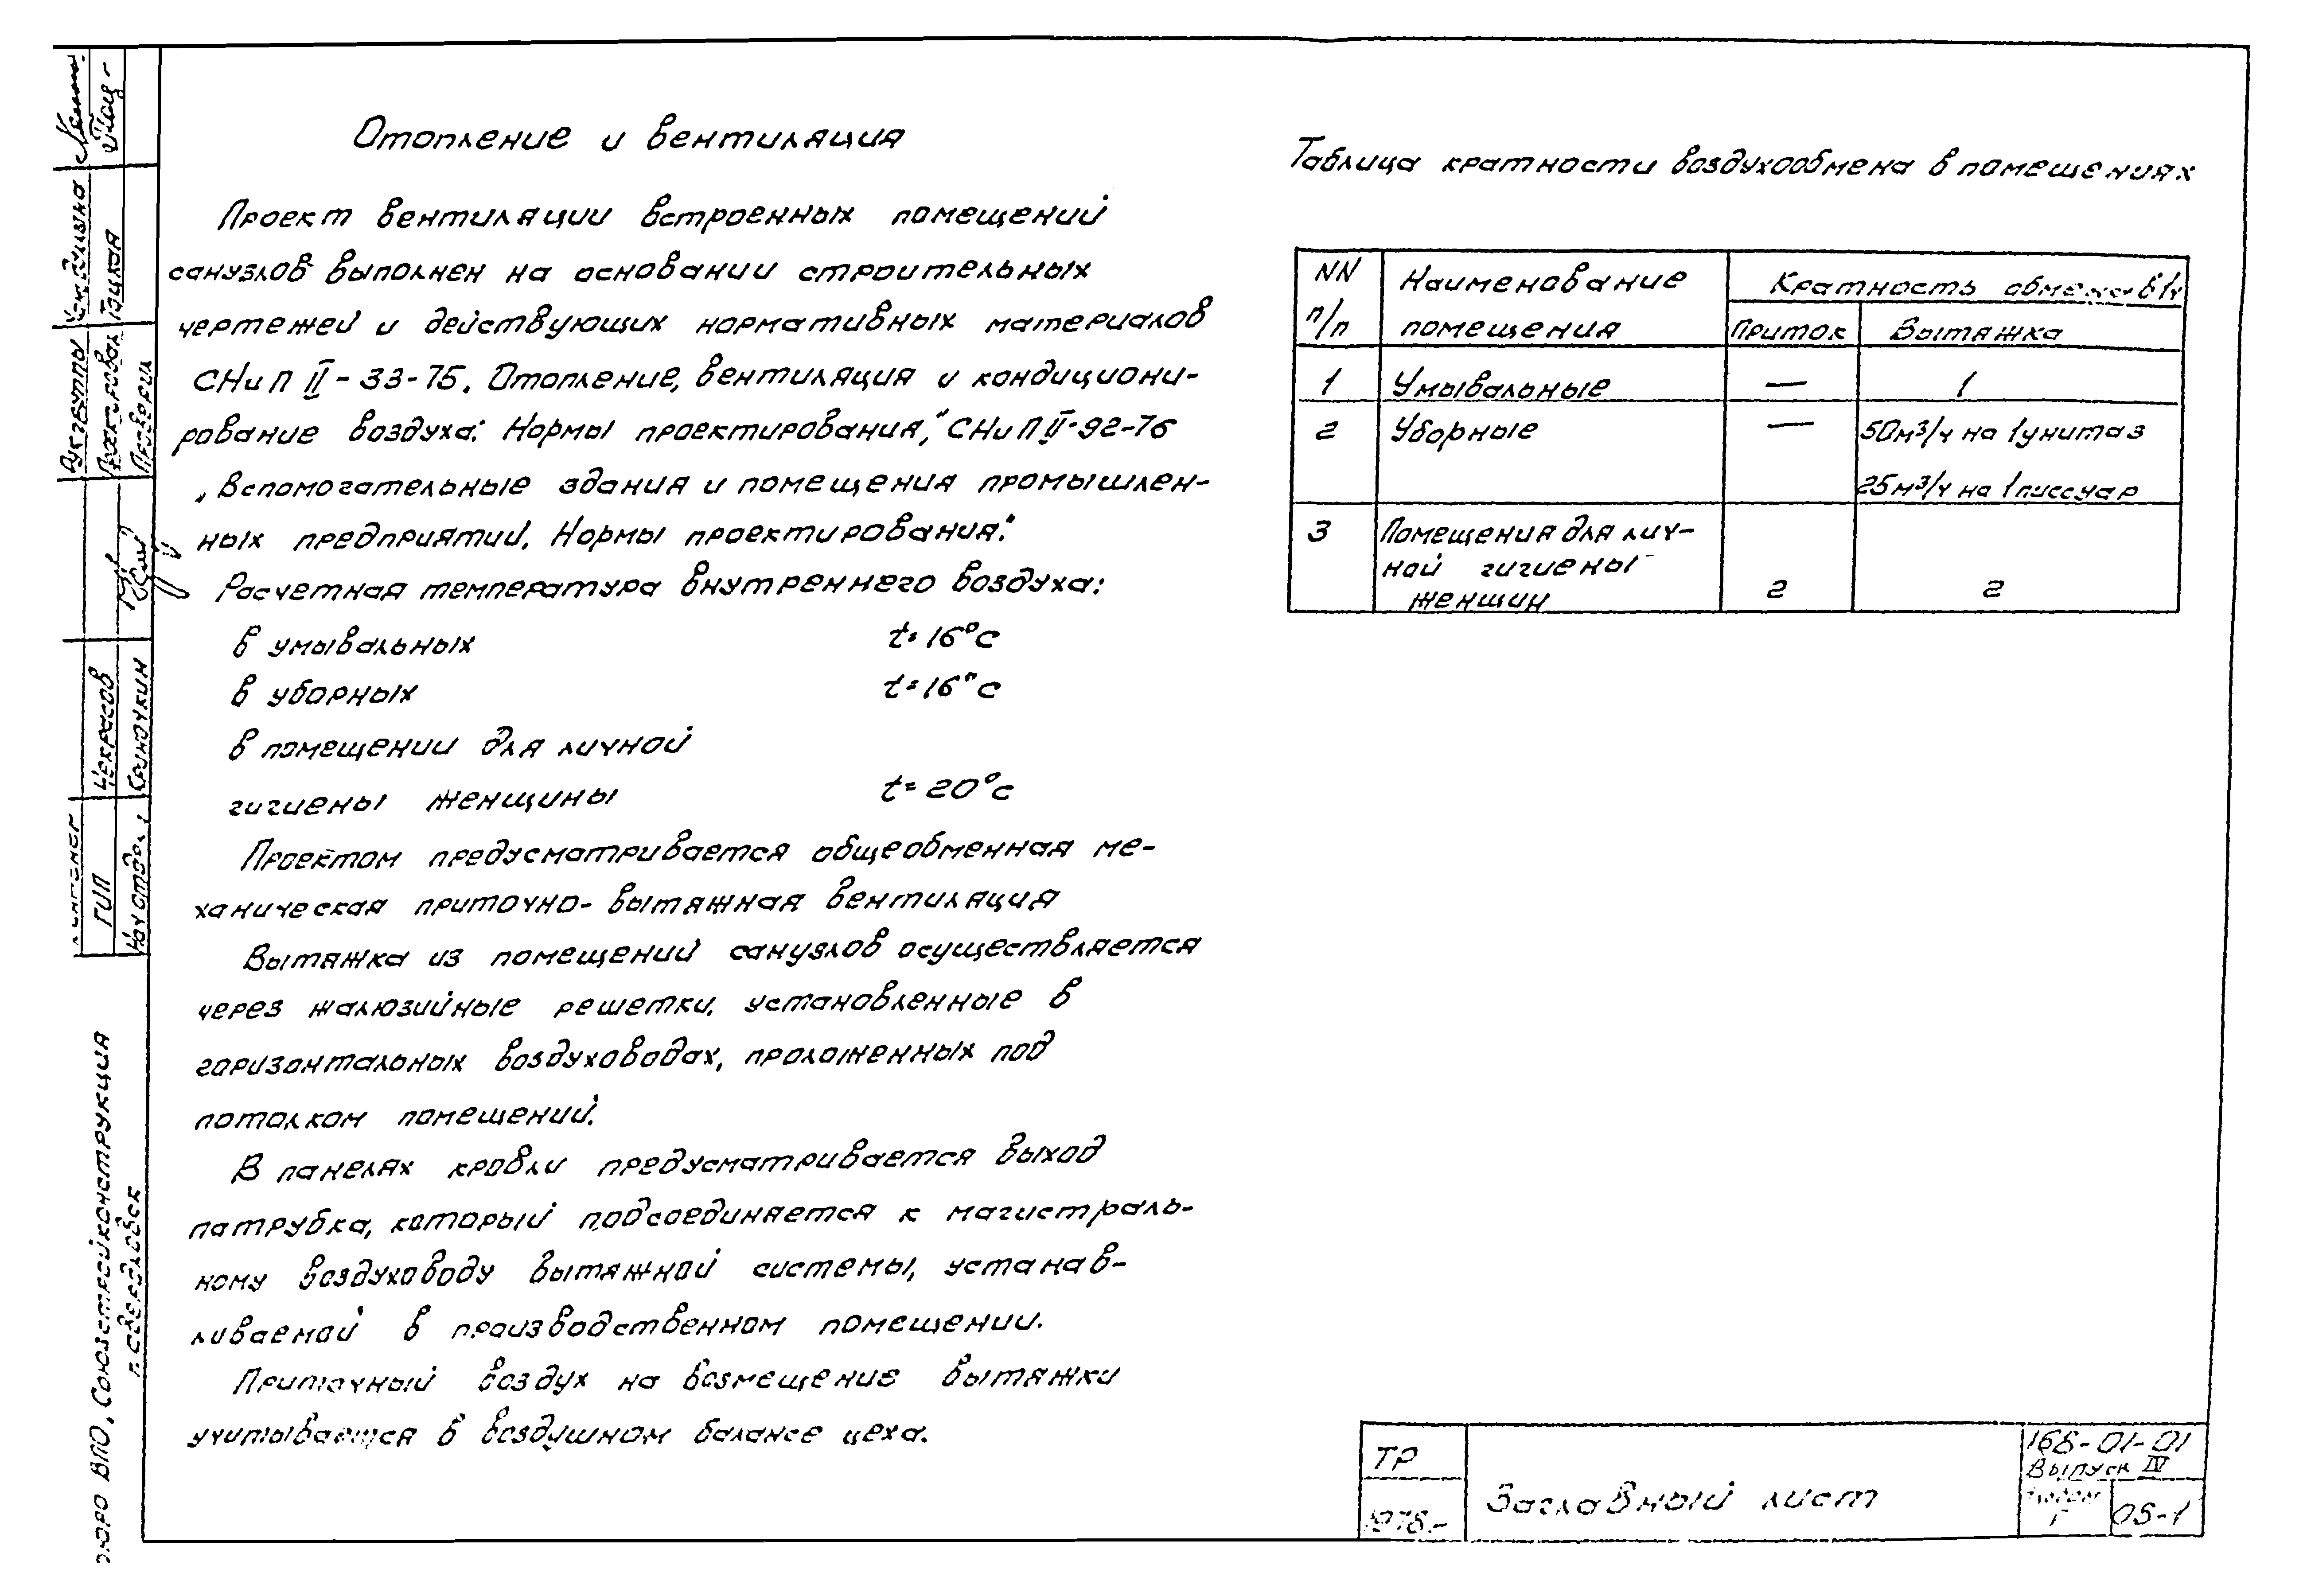 Отопление и вентиляция
Проект вентиляции встроенных помещений
санузлов выполнен на основании строительных
чертежей и действующих нормативных материалов
СНиП II-33-75. Отопление, вентиляция и кондициони-
рование воздуха: Нормы проектирования," СНиП II-92-76
„Вспомогательные здания и помещения промышлен-
ных предприятий. Нормы проектирования."
Расчетная температура внутреннего воздуха:
в умывальных t=16°с
в уборных t=16°с
в помещении для личной
гигиены женщины t=20°с
Проектом предусматривается общеобменная ме-
ханическая приточно-вытяжная вентиляция
Вытяжка из помещений санузлов осуществляется
через жалюзийные решетки, установленные в
горизонтальных воздуховодах, проложенных под
потолком помещений.
В панелях кровли предусматривается выход
патрубка, который подсоединяется к магистраль-
ному воздуховоду вытяжной системы, устанав-
ливаемой в производственном помещении.
Приточный воздух на возмещение вытяжки
учитывается в воздушном балансе цеха.
Таблица кратности воздухообмена в помещениях
NN п/п
Наименование помещения
Кратность обмена в 1ч
Приток Вытяжка
1 Умывальные — 1
2 Уборные — 50м³/ч на 1 унитаз
25м³/ч на 1 писсуар
3 Помещения для лич-
ной гигиены
женщин 2 2
ТР
Заглавный лист
Выпуск IV
Г
Рук.группы
Проектировал
Проверил
Некрасов
ГИП
ВПО, Союзстройконструкция
г. Свердловск